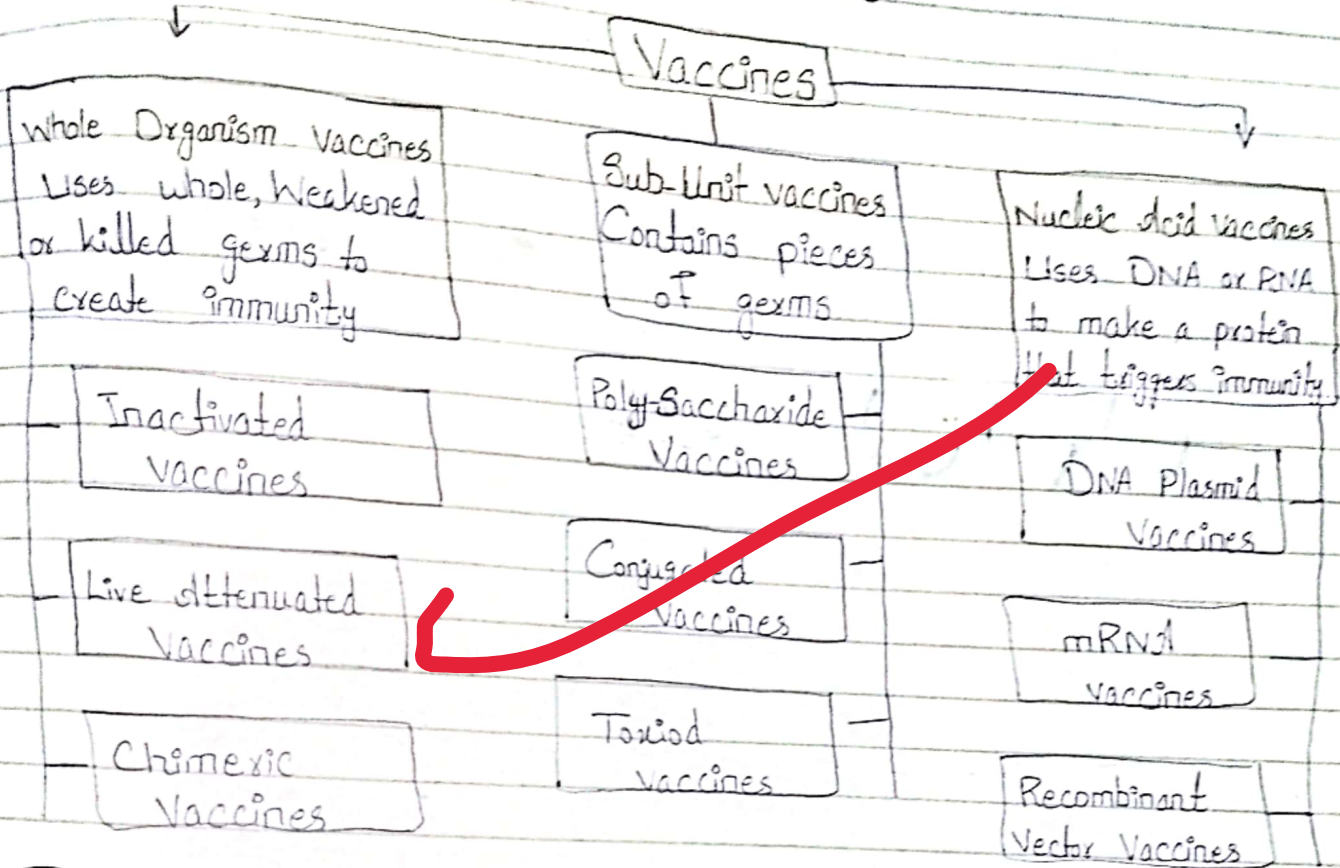 Vaccines
Whole Organism Vaccines
Uses whole, Weakened
or killed germs to
create immunity
Inactivated
vaccines
Live Attenuated
Vaccines
Chimeric
Vaccines
Sub-Unit vaccines
Contains pieces
of germs
Poly-Saccharide
Vaccines
Conjugated
Vaccines
Toxiod
vaccines
Nucleic Acid Vaccines
Uses DNA or RNA
to make a protein
that triggers immunity.
DNA Plasmid
Vaccines
mRNA
vaccines
Recombinant
Vector Vaccines